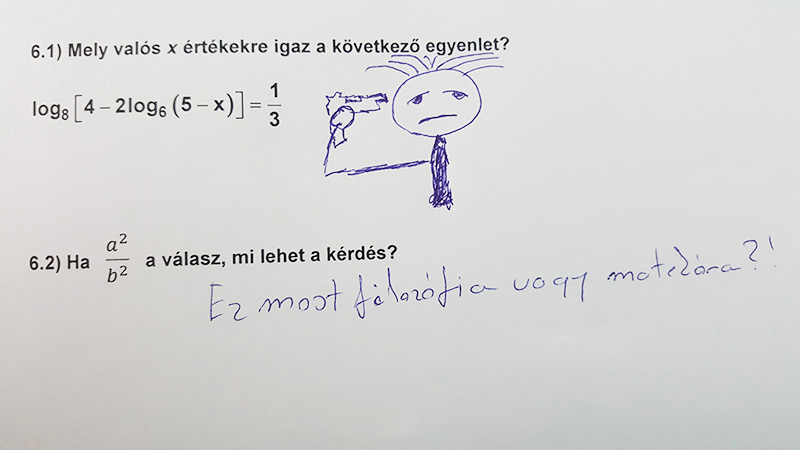 6.1) Mely valós x értékekre igaz a következő egyenlet?
log₈[4 – 2log₆(5 – x)] = 1/3
6.2) Ha a²/b² a válasz, mi lehet a kérdés?
Ez most filozófia vagy matekóra?!